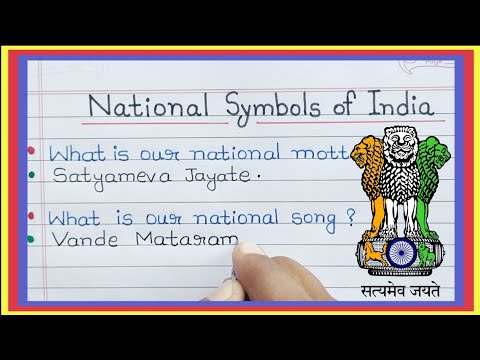 National Symbols of India
What is our national mott
Satyameva Jayate.
What is our national song ?
Vande Mataram
सत्यमेव जयते